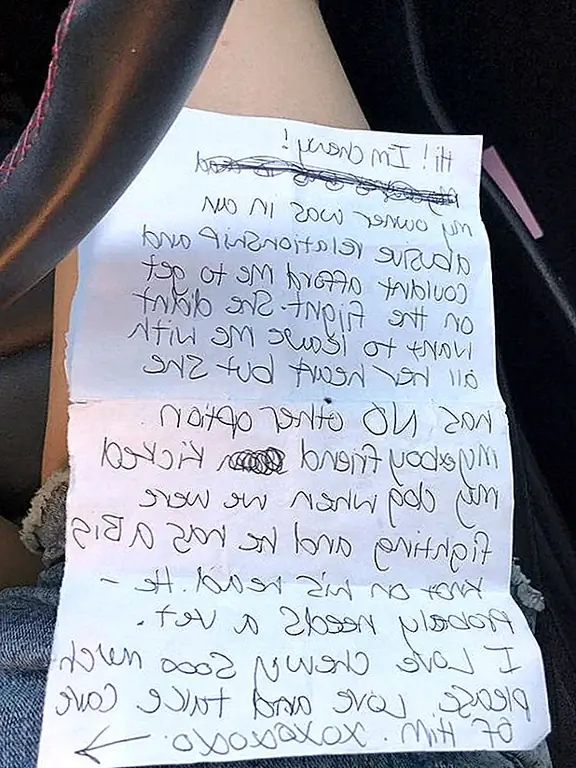 Hi! I'm Chewy!
my owner was in an
abusive relationship and
couldnt afford me to get
on the flight. She didnt
want to leave me with
all her heart but she
has NO other option.
my ex boyfriend kicked
my dog when we were
fighting and he has a BIG
knot on his head. He
Probaly needs a vet.
I Love Chewy sooo much
please Love and take care
OF HIM. xoxoxoxo.